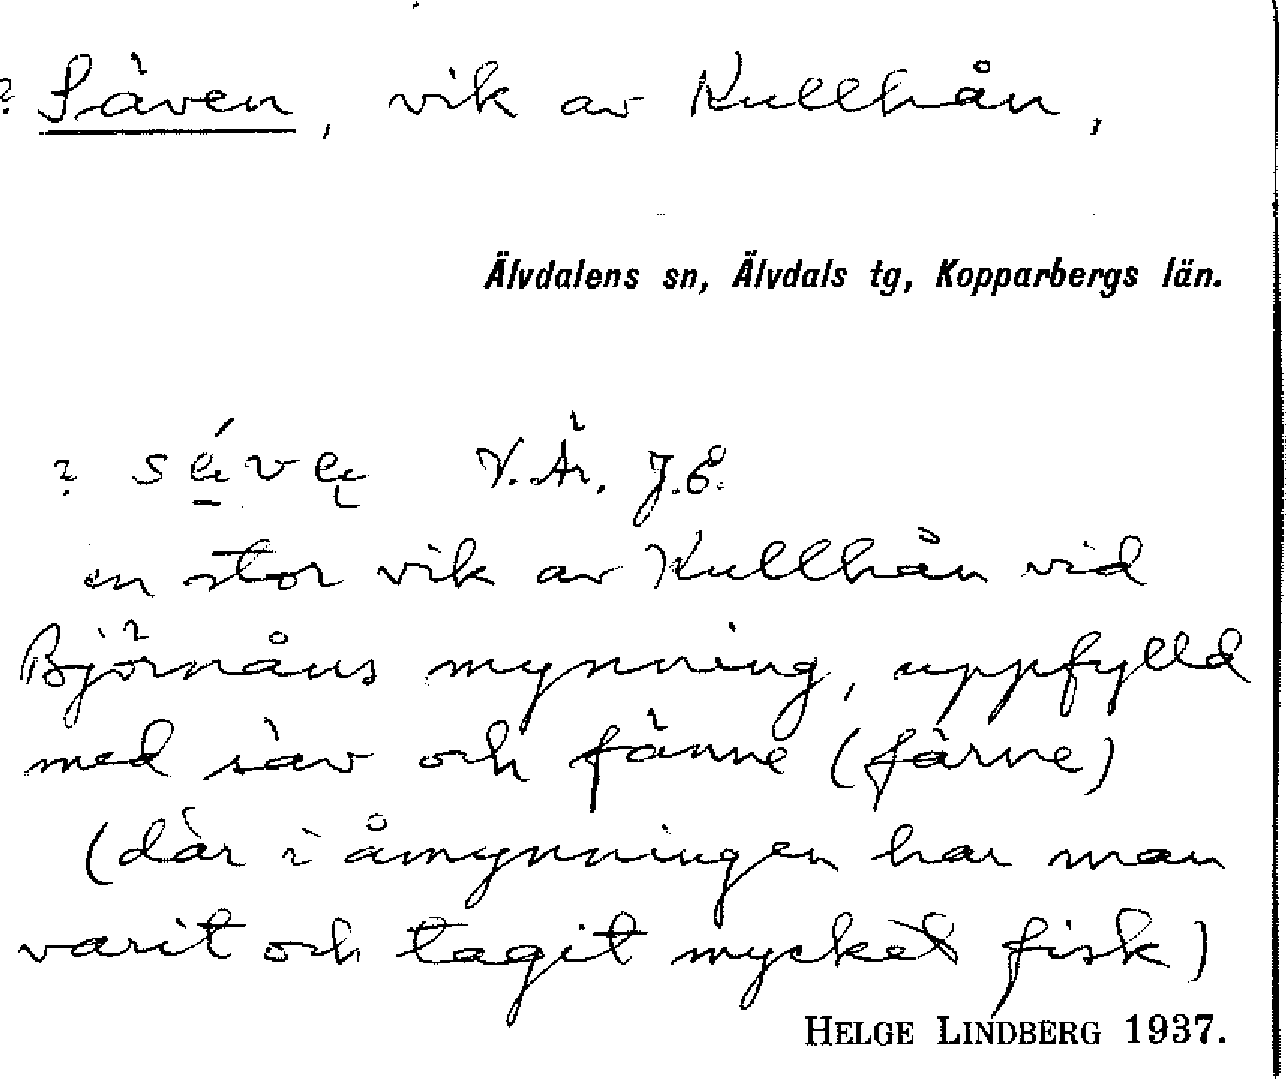 ? Säven, vik av Kullhån,
Älvdalens sn, Älvdals tg, Kopparbergs län.
? V. Är. J.E.
en stor vik av Kullhån vid
Björnåns mynning, uppfylld
med säv och fänne (färne)
(där i åmynningen har man
varit och tagit mycket fisk)
HELGE LINDBERG 1937.